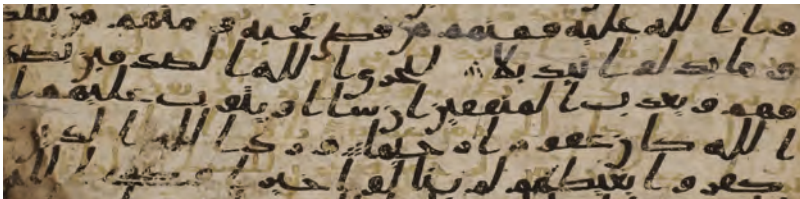 الله عليه فمنهم من قضى نحبه ومنهم من ينتظ
ر وما بدلوا تبديلا ليجزي الله الصدقين بصد
قهم ويعذب المنفقين ان شا او يتوب عليهم ان
الله كان غفورا رحيما ورد الله الذين
كفروا بغيظهم لم ينالوا خيرا وكفى الله